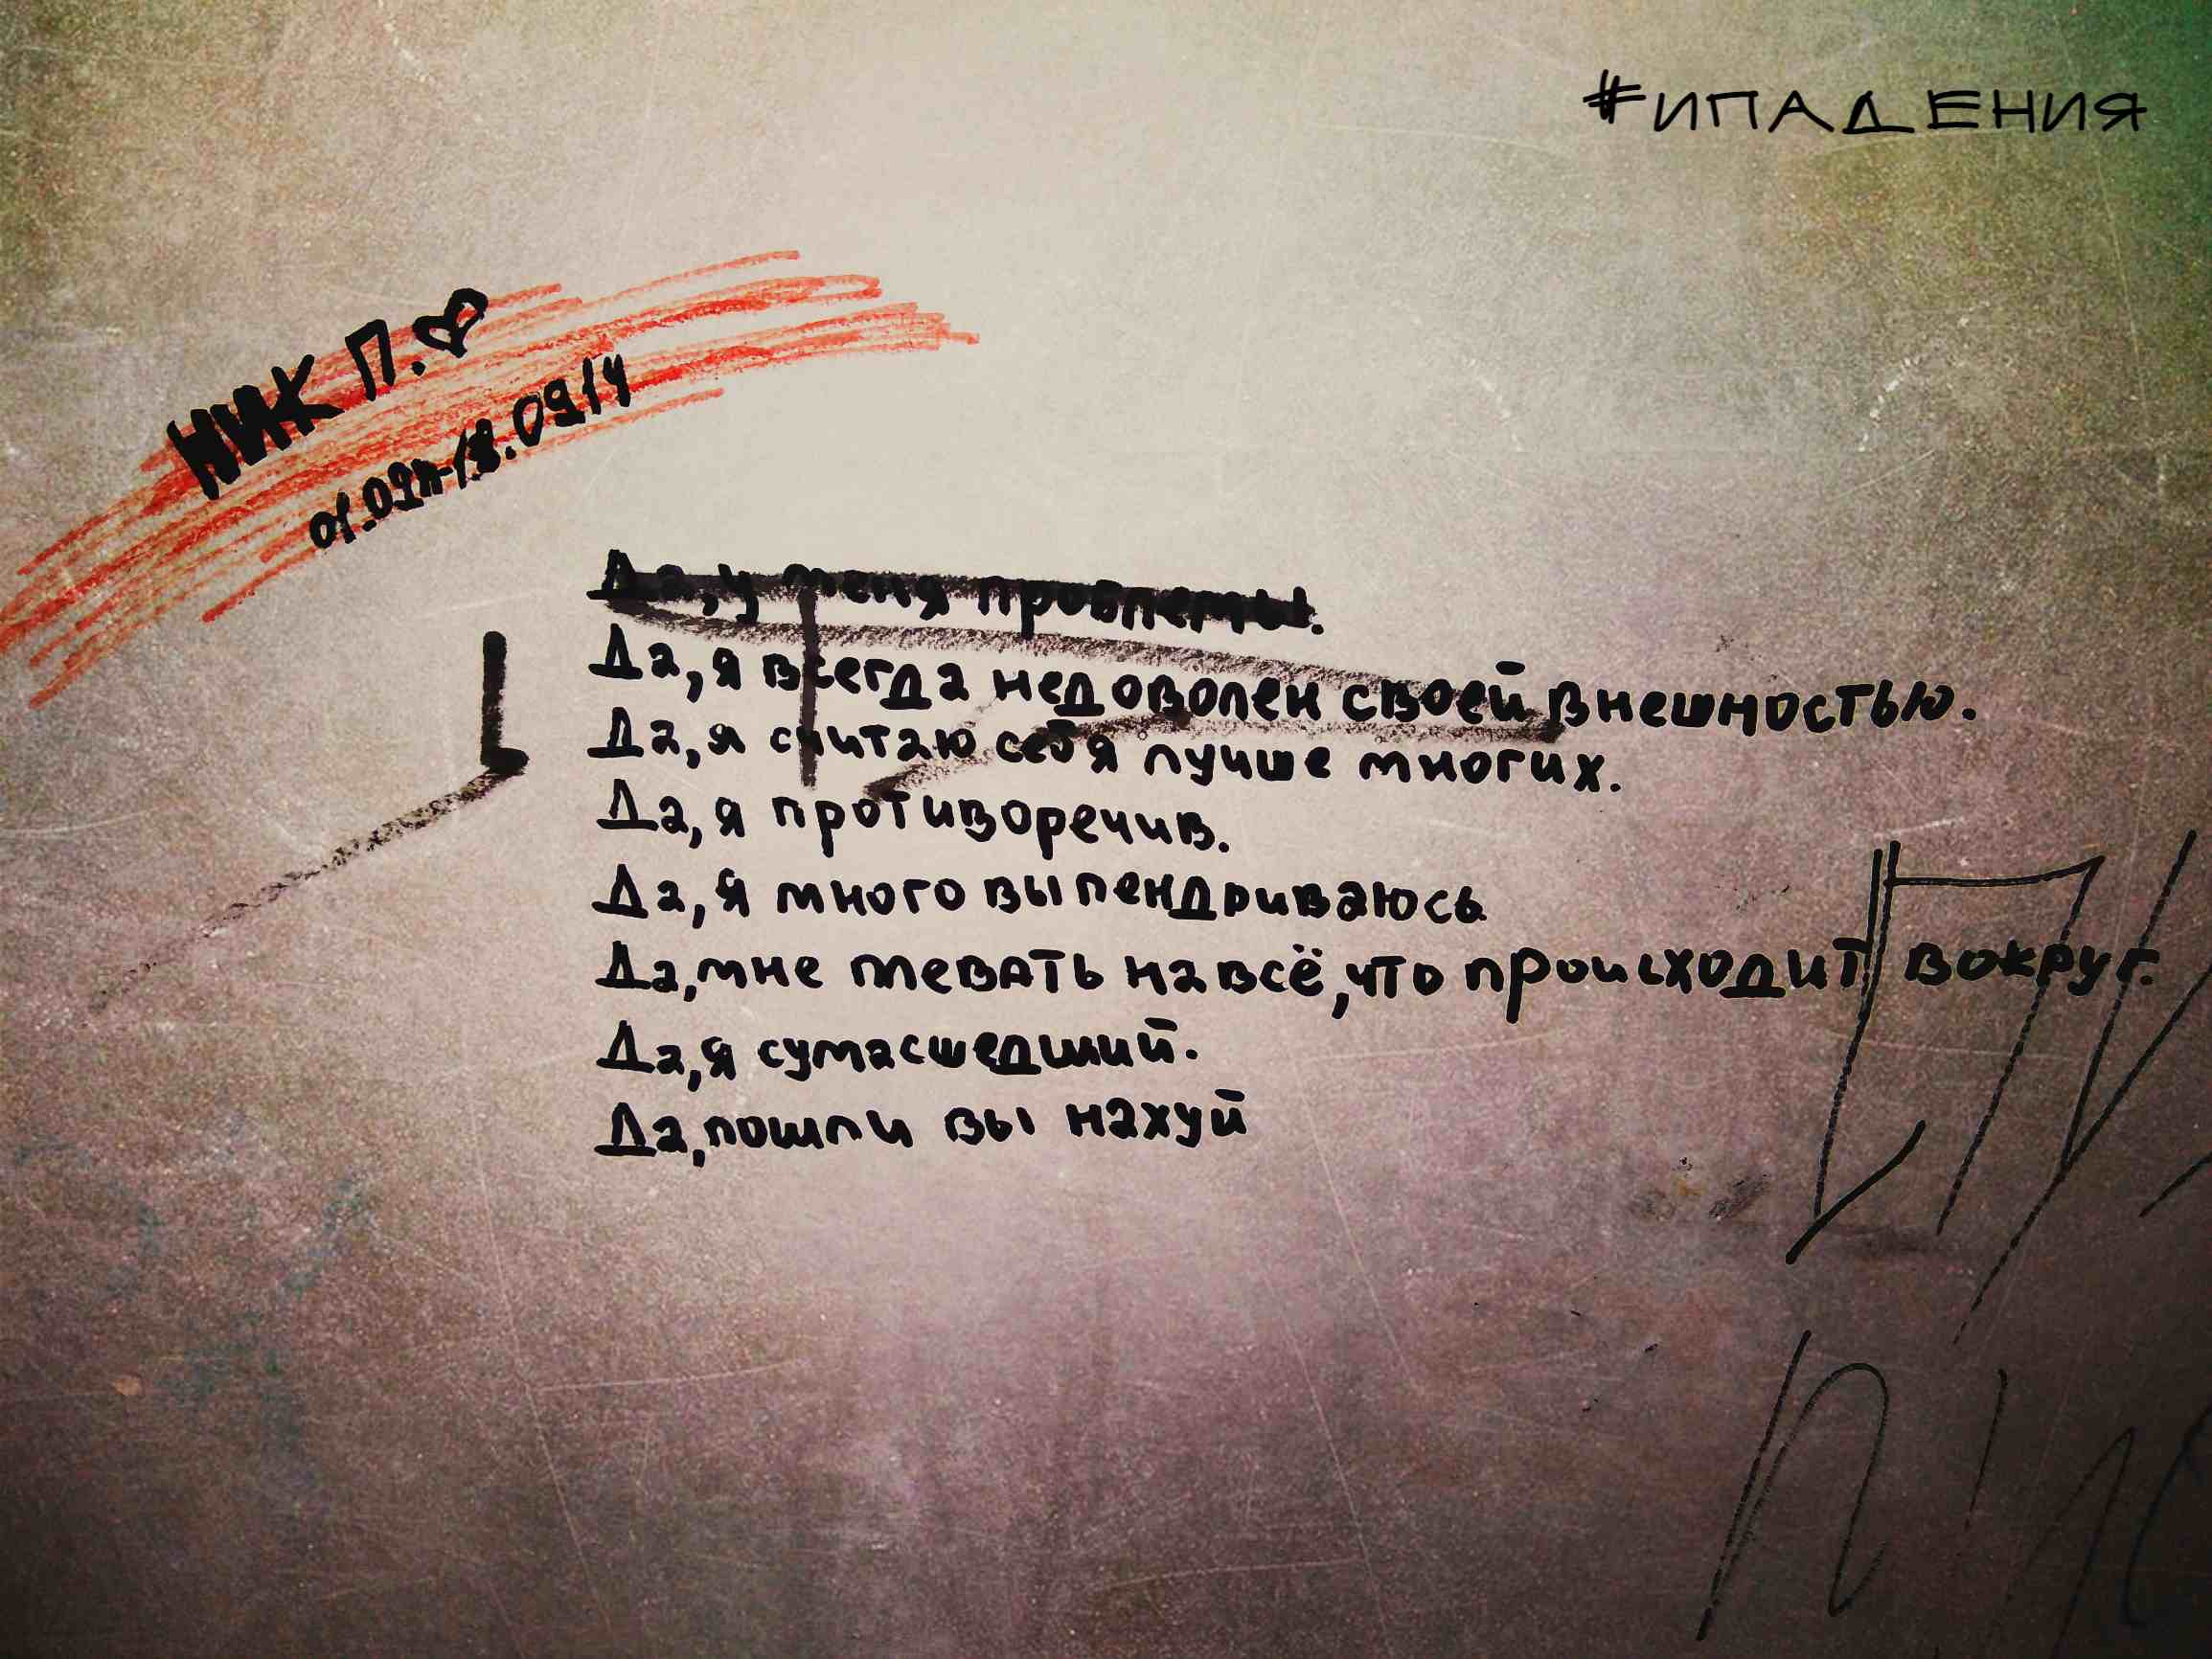 #ИПАДЕНИЯ
НИК П.
Да, у меня проблемы.
Да, я всегда недоволен своей внешностью.
Да, я считаю себя лучше многих.
Да, я противоречив.
Да, я много выпендриваюсь.
Да, мне плевать на всё, что происходит вокруг.
Да, я сумасшедший.
Да, пошли вы нахуй